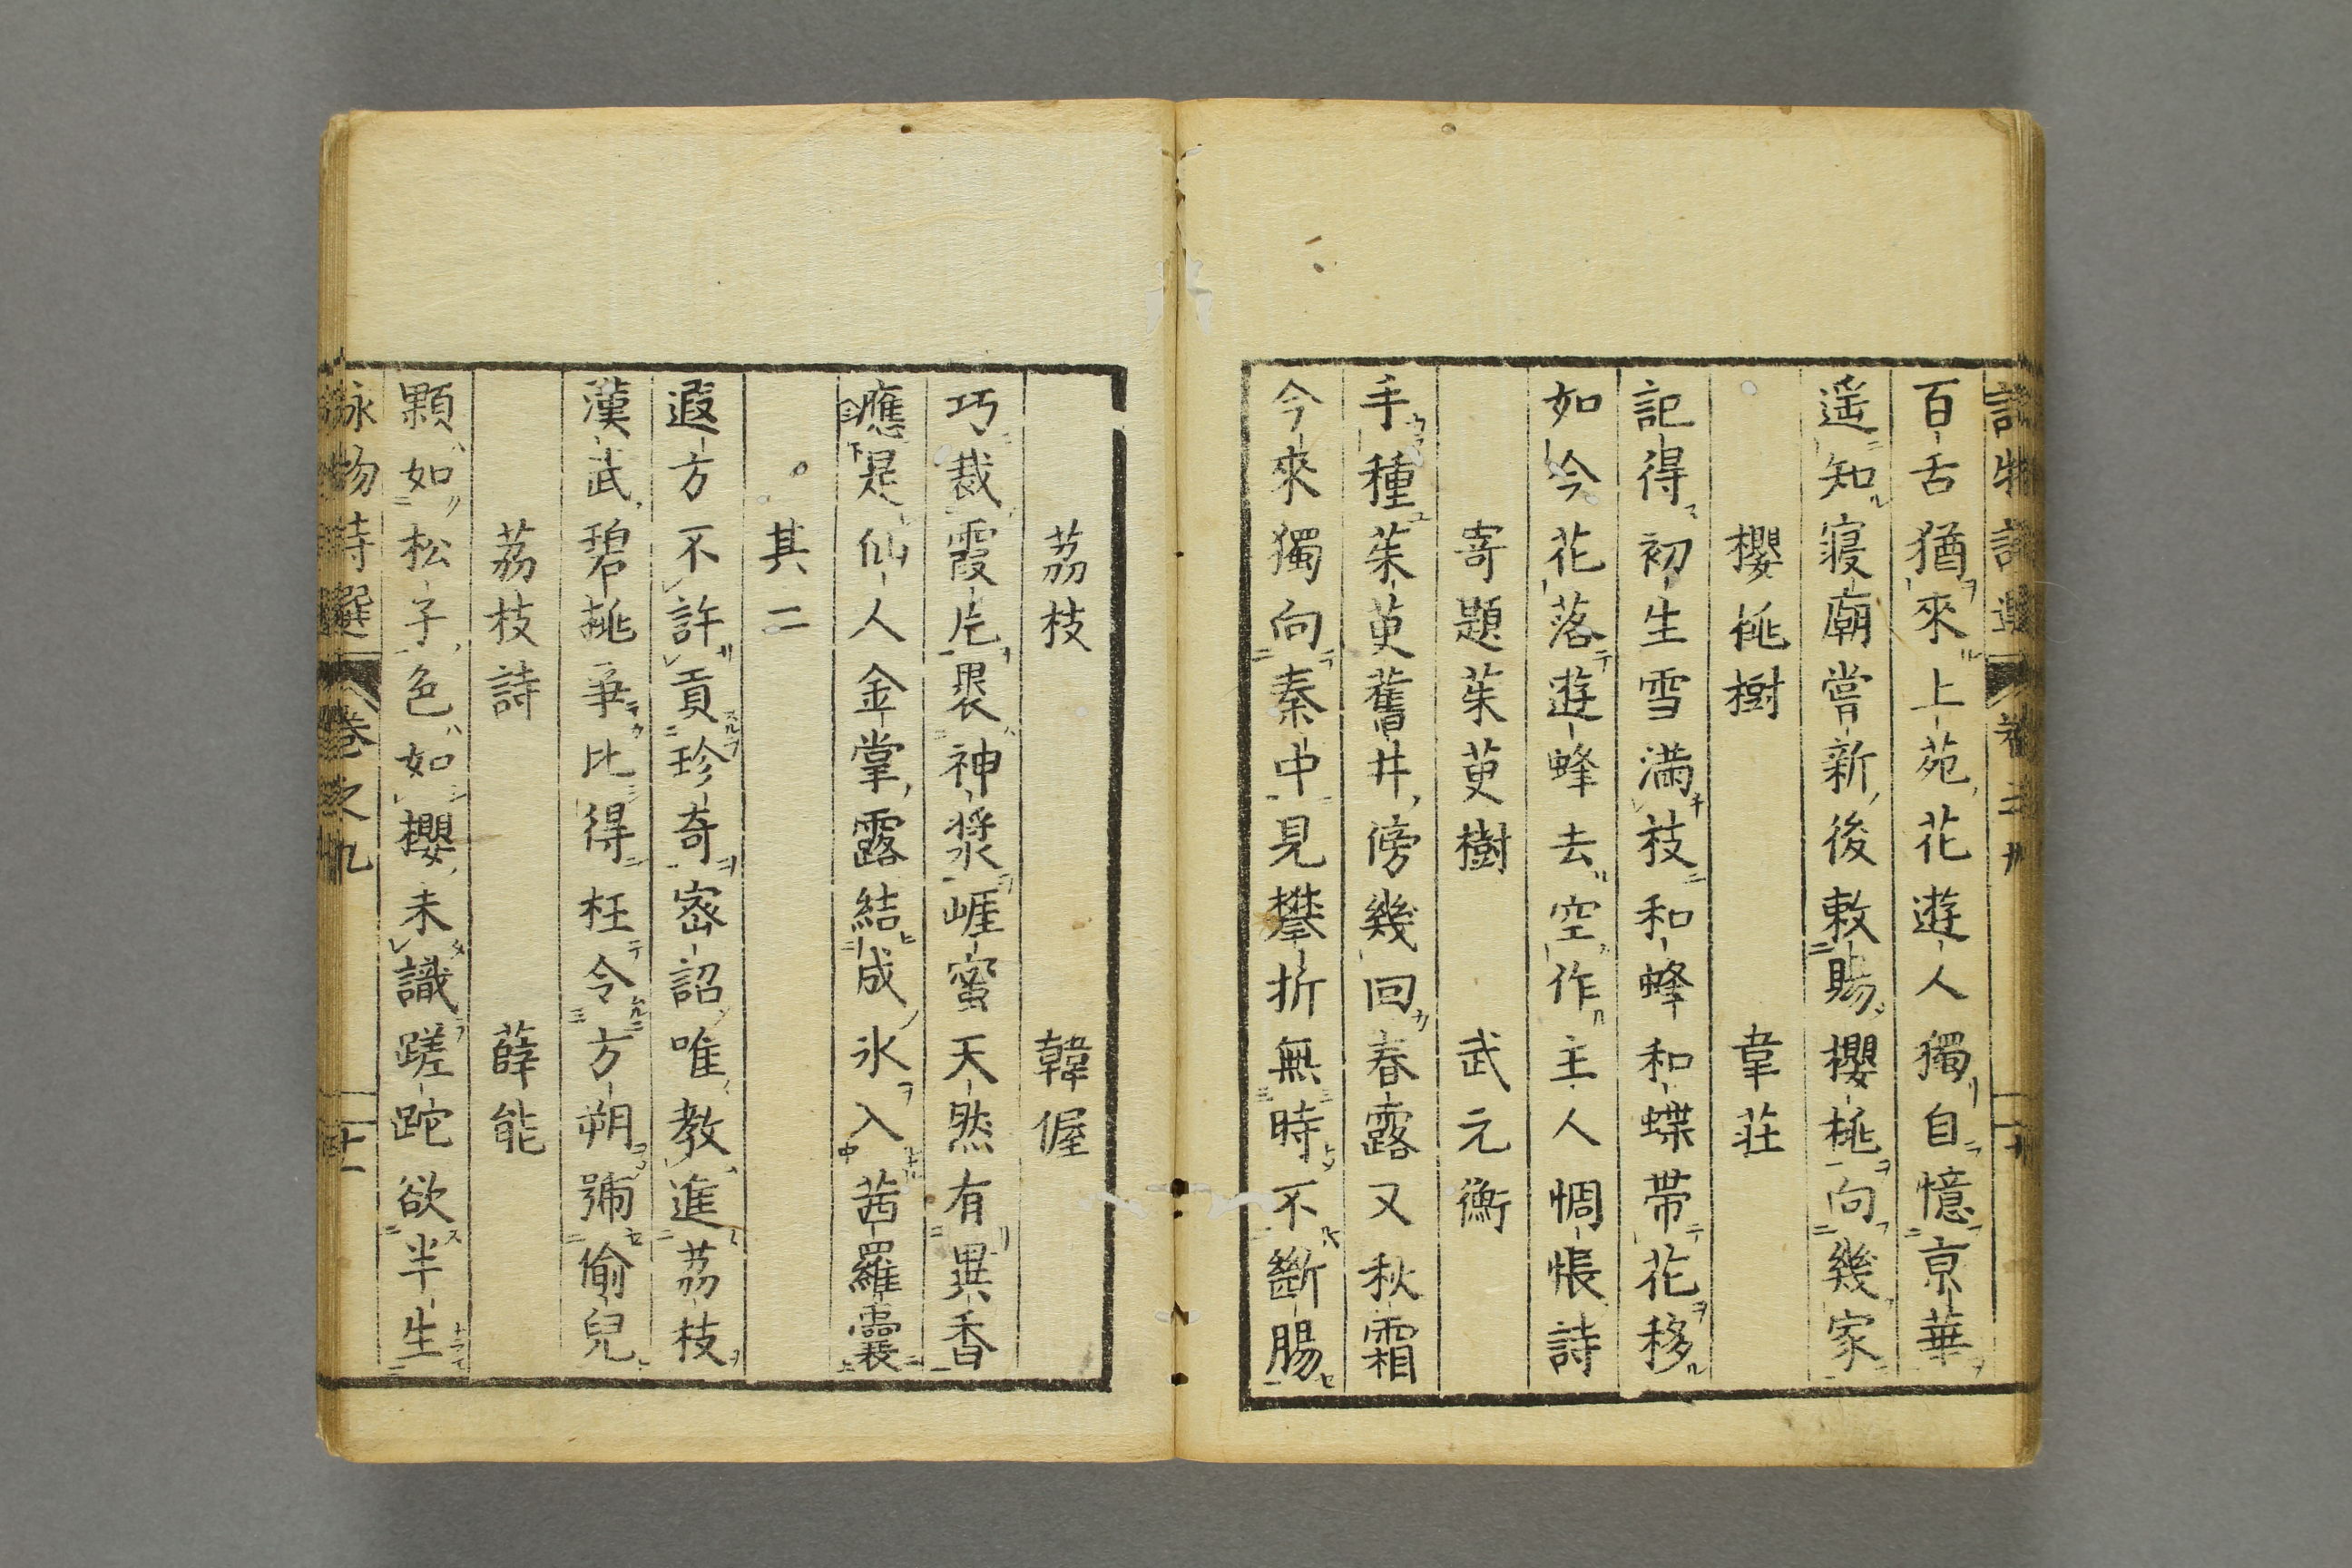 百舌猶來上苑花遊人獨自憶京華
遥知寢廟嘗新後敕賜櫻桃向幾家
櫻桃樹 韋荘
記得初生雪滿枝和蜂和蝶帯花移
如今花落遊蜂去空作主人惆悵詩
寄題茱萸樹 武元衡
手種茱萸舊井傍幾回春露又秋霜
今來獨向秦中見攀折無時不斷腸
荔枝 韓偓
巧裁霞片裹神漿崕蜜天然有異香
應是仙人金掌露結成氷入茜羅囊
其二
遐方不許貢珍奇密詔唯教進荔枝
漢武碧桃爭比得枉令方朔號偷兒
荔枝詩 薛能
顆如松子色如櫻未識蹉跎欲半生
詠物詩選 卷之九 十一